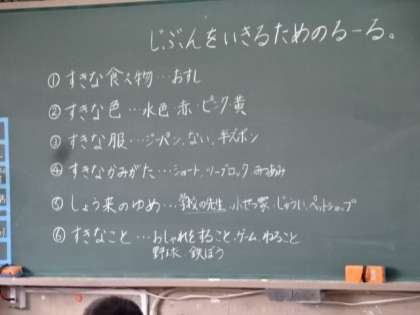 じぶんをいきるためのるーる。
①すきな食べ物…おすし
②すきな色…水色、赤、ピンク、黄
③すきな服…ジーパン、ない、半ズボン
④すきなかみがた…ショート、ツーブロック みつあみ
⑤しょう来のゆめ…学校の先生、小せつ家、じゅうい、ペットショップ
⑥すきなこと…おしゃれをすること、ゲーム ねること
野球 鉄ぼう